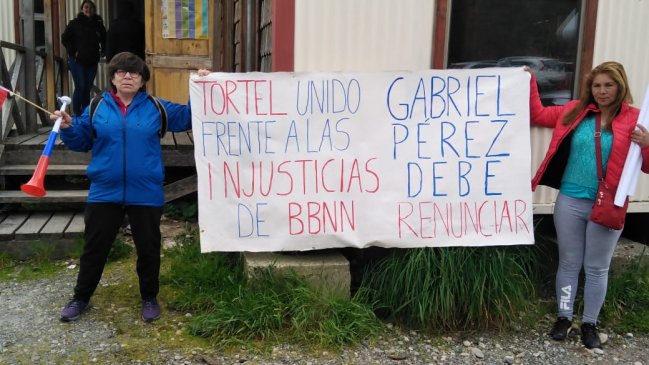 TORTEL UNIDO
FRENTE A LAS
INJUSTICIAS
DE BBNN
GABRIEL
PÉREZ
DEBE
RENUNCIAR
FILA